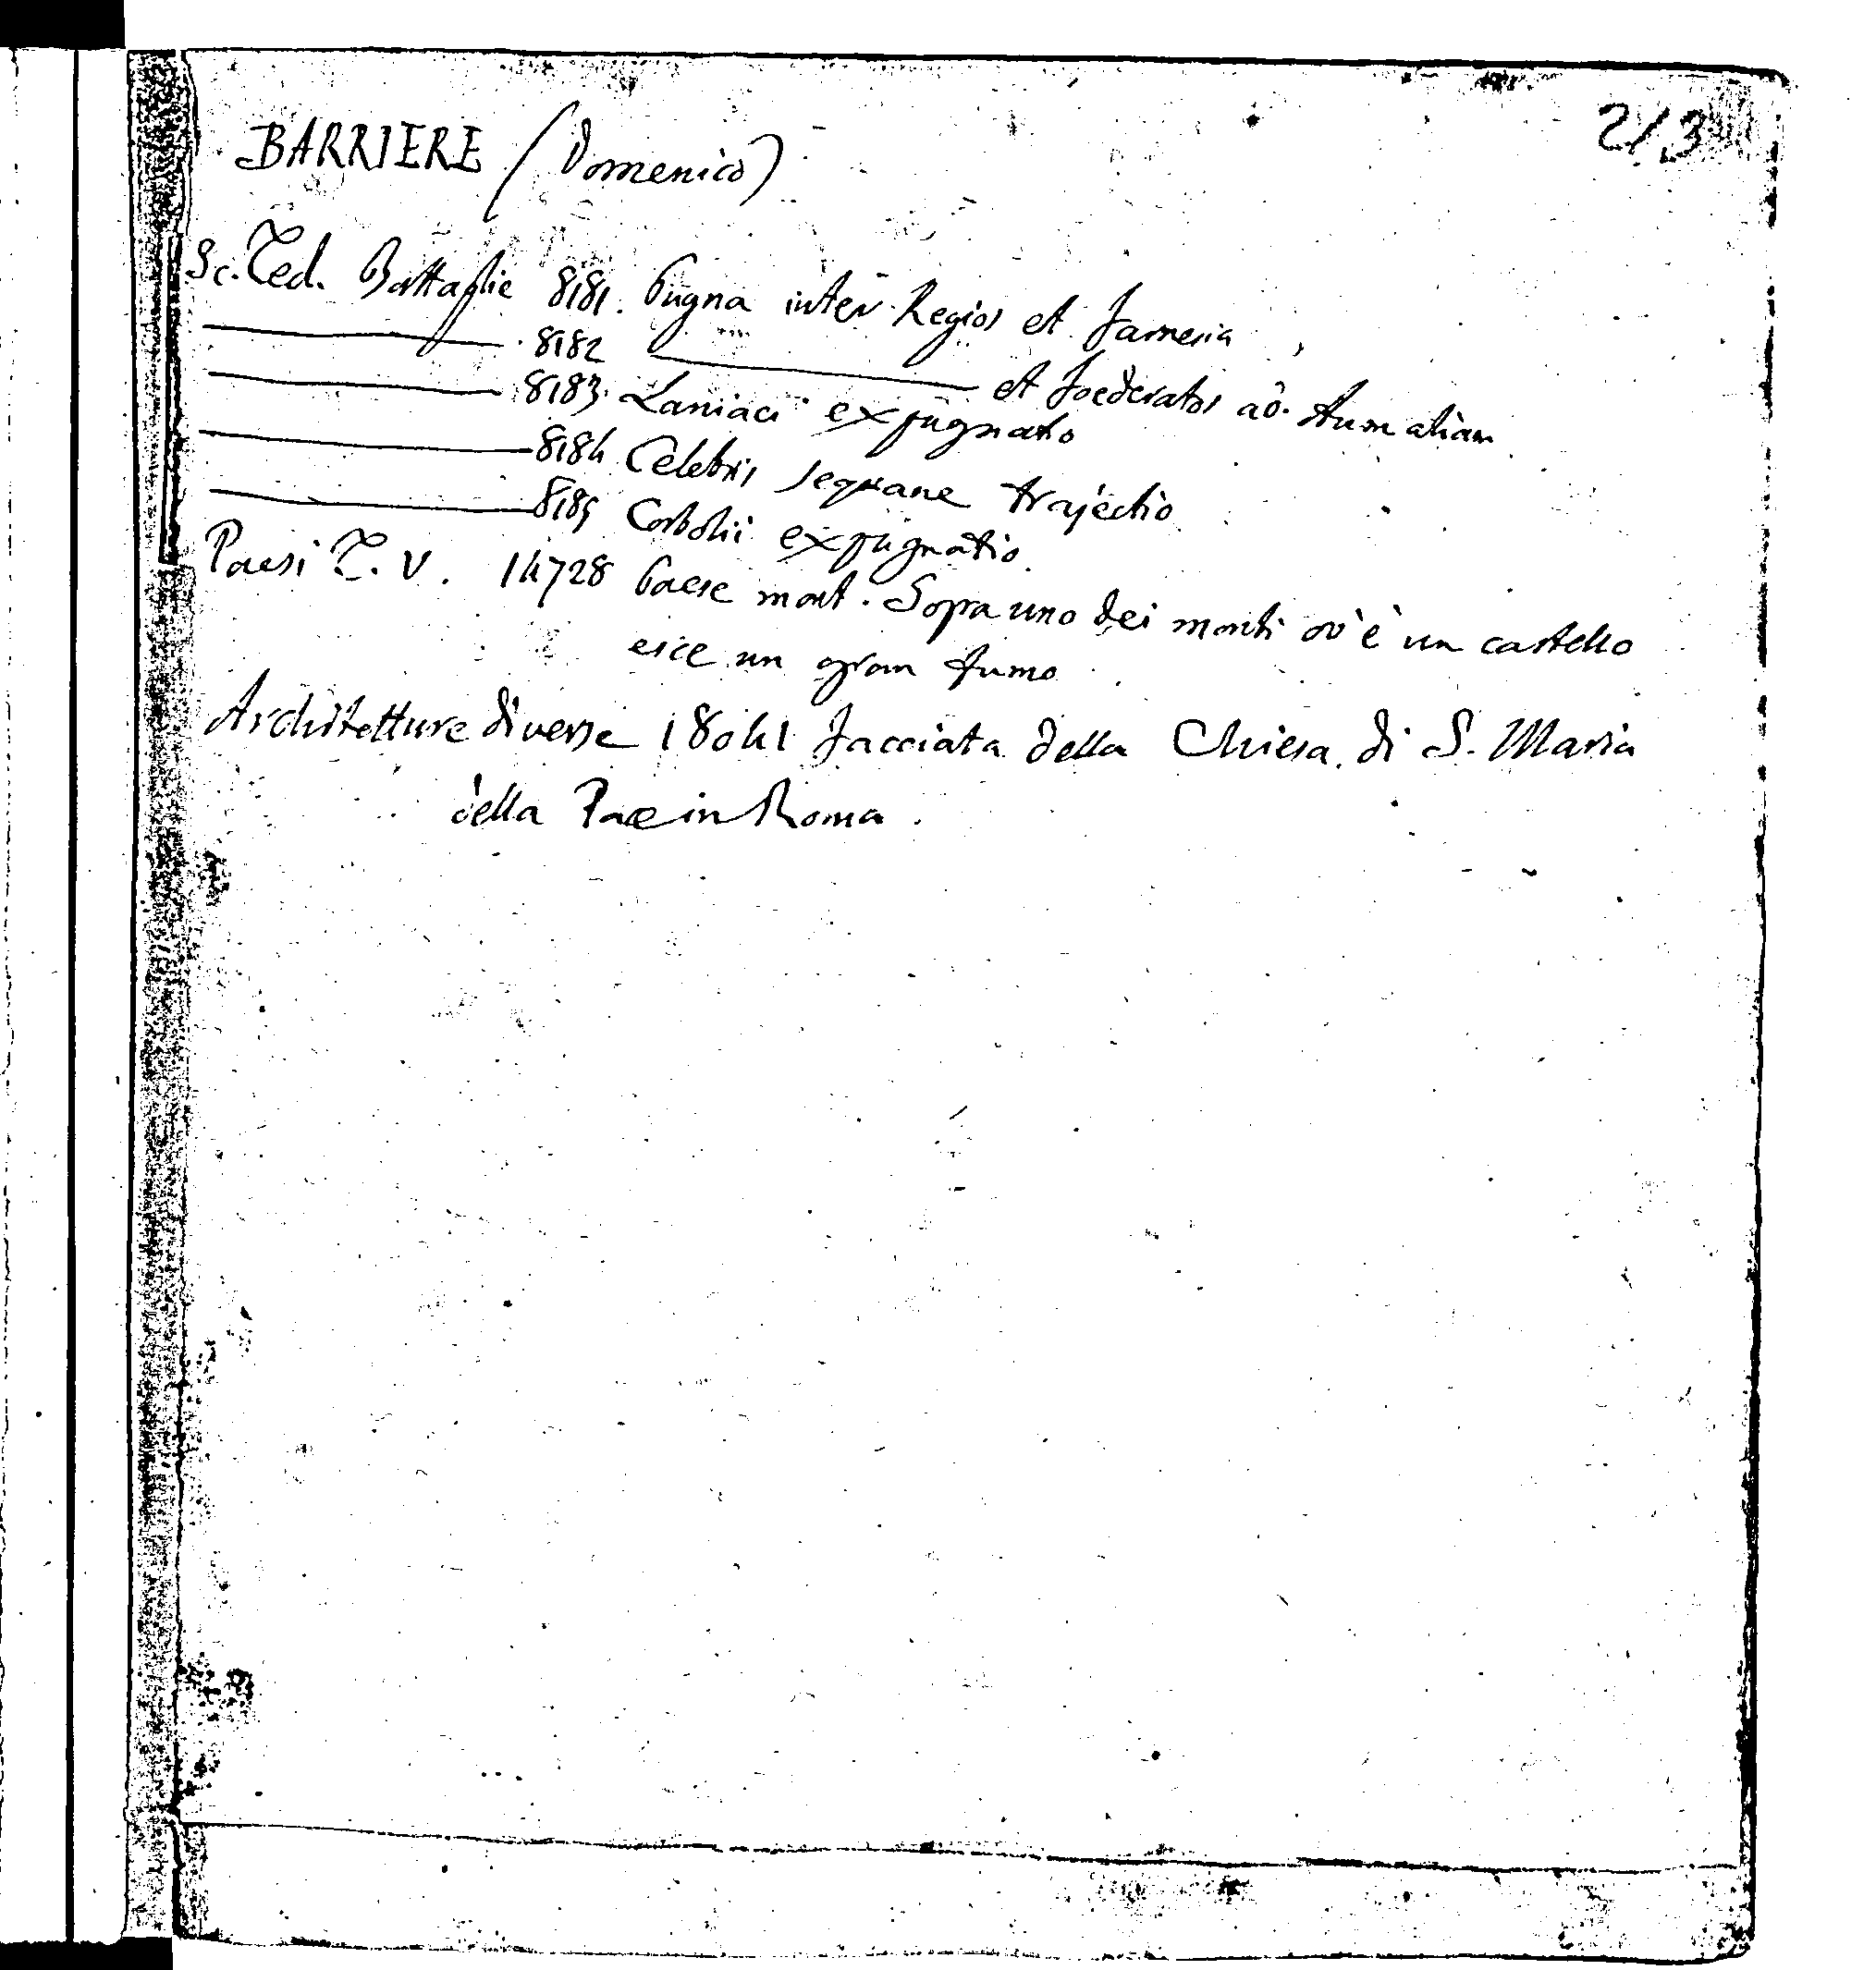 213
BARRIERE (Domenico)
Sc. Ted. Battaglie 8181. Pugna inter Regios et Farnesia
8182 ——— et foederatos ad Aumaliam
8183. Laniaci expugnatio
8184 Celebris sequane trajectio
8185 Corbolii expugnatio.
Paesi T. V. 14728 Paese mont. Sopra uno dei monti ov'è un castello
esce un gran fumo
Architetture diverse 18041 facciata della Chiesa di S. Maria
della Pace in Roma.